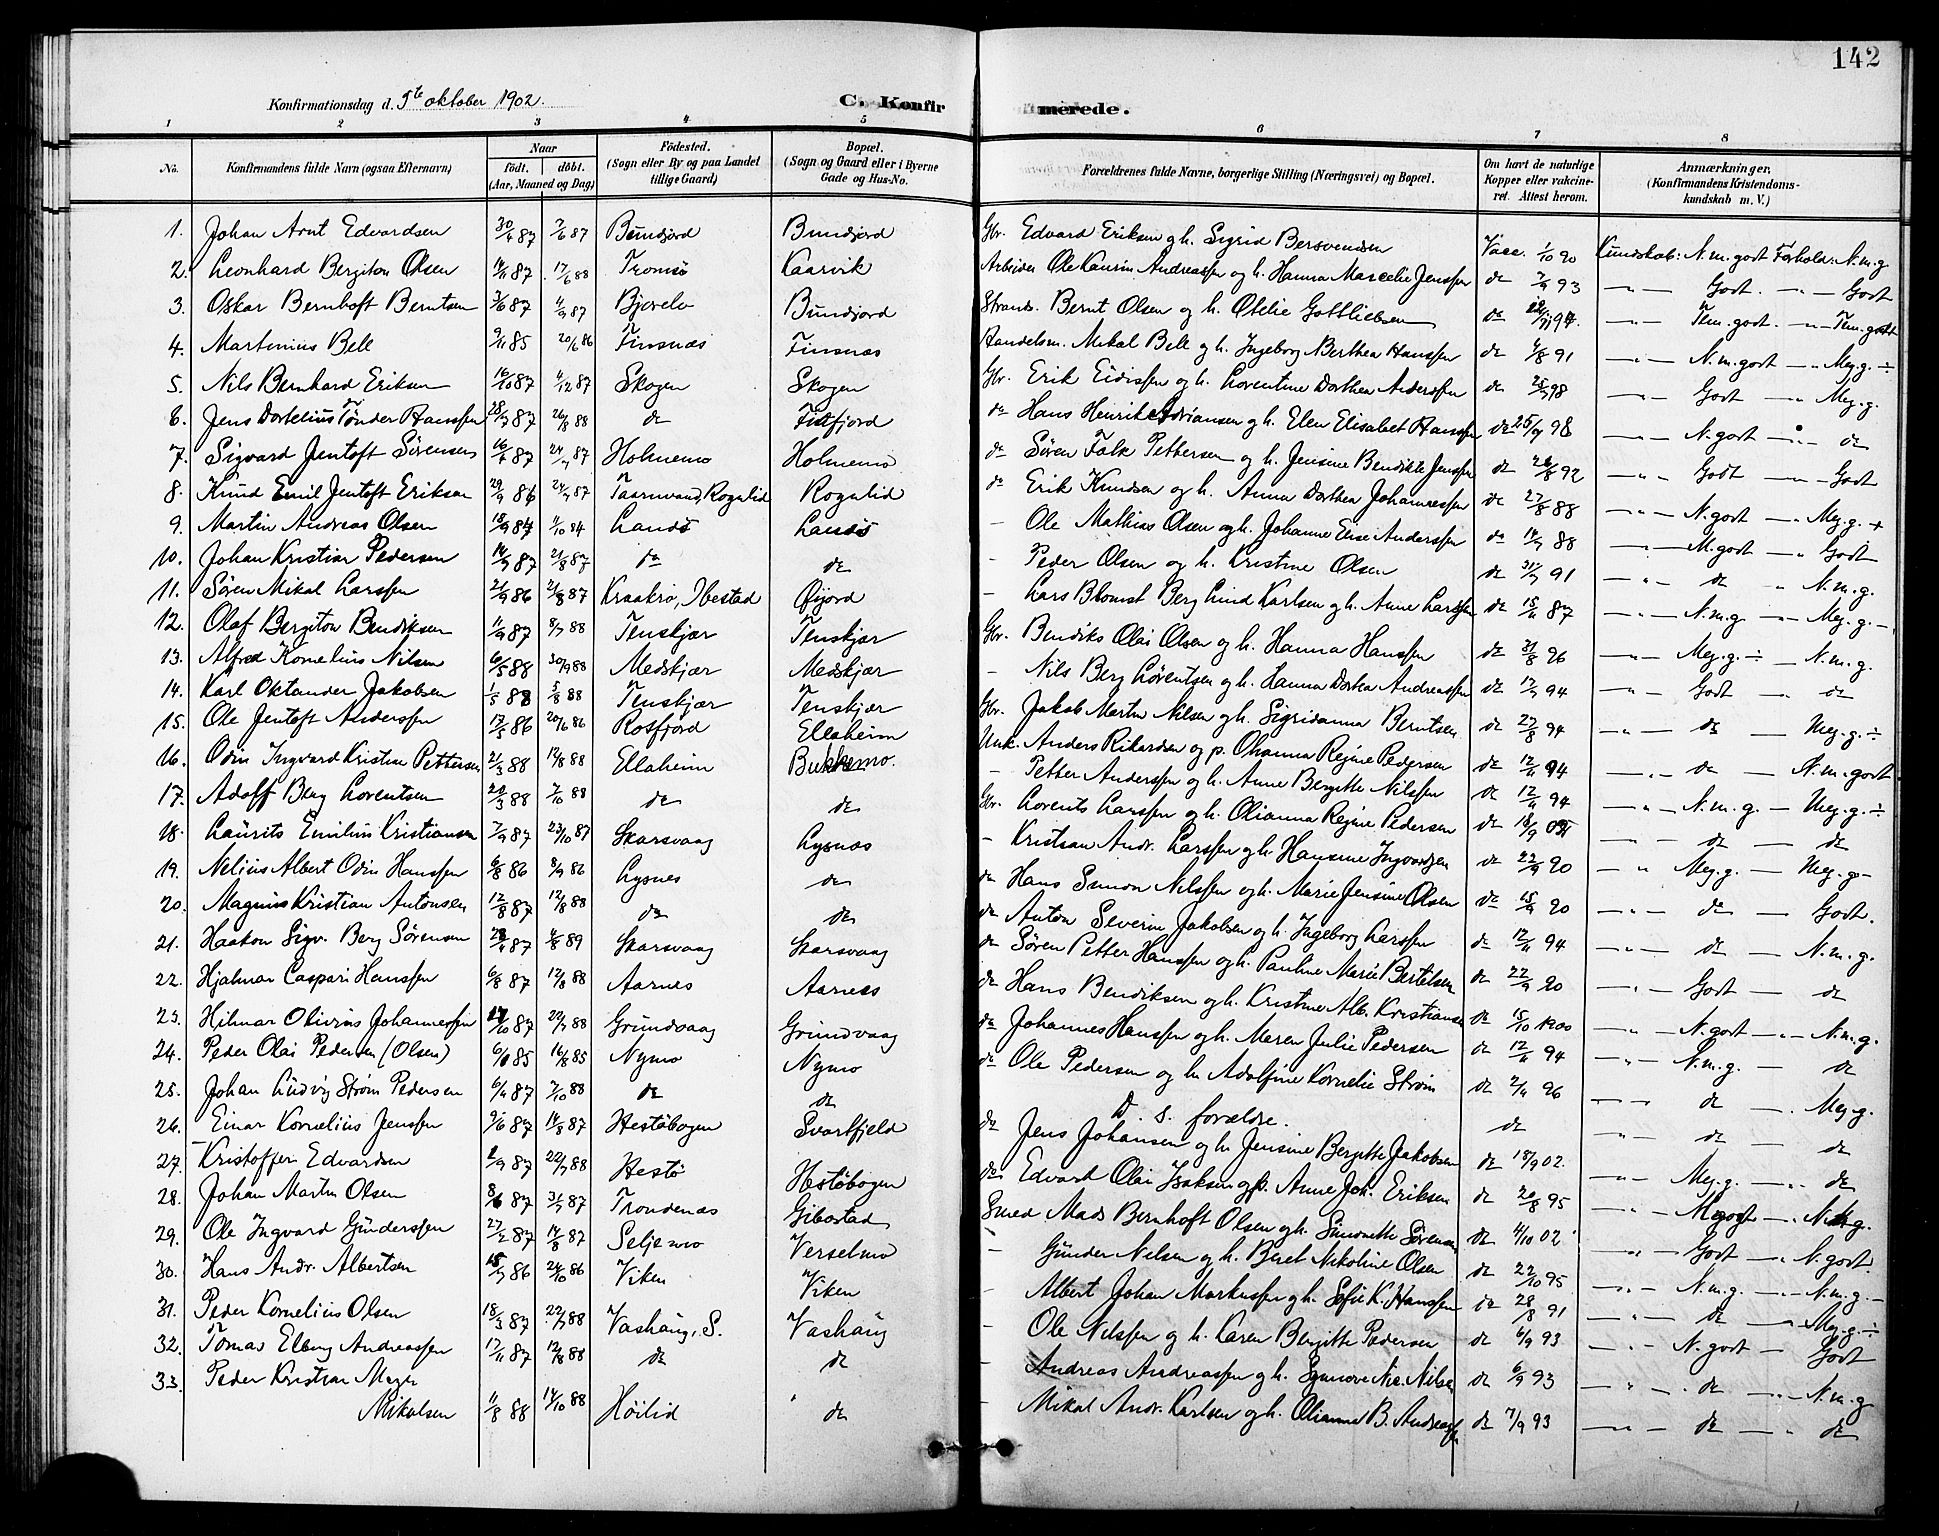 142
Konfirmationsdag d. 5te oktober 1902.
C. Konfir
merede.
1 2 3 4 5 6 7 8
No. Konfirmandens fulde Navn (ogsaa Efternavn) Naar födt. döbt. (Aar, Maaned og Dag) Födested. (Sogn eller By og paa Landet tillige Gaard) Bopæl. (Sogn og Gaard eller i Byerne Gade og Hus-No.
Forældrenes fulde Navne, borgerlige Stilling (Næringsvei) og Bopæl. Om havt de naturlige Kopper eller vakcineret. Attest herom. Anmærkninger. (Konfirmandens Kristendomskundskab m. V.)
1. Johan Arnt Edvardsen 30/4 87 7/6 87 Bundjord Bundjord Gbr. Edvard Eriksen og h. Sigrid Bersvendsen Vacc. 1/10 90 Kundskab: N. m. godt Forhold: N. m. g.
2. Leonhard Bergiton Olsen 14/11 87 17/6 88 Tromsö Kaarvik Arbeider Ole Kaurin Andreassen og h. Hanna Marcelie Jenssen do 7/9 93 Godt Godt
3. Oskar Bernhoft Berntsen 3/6 87 4/9 87 Bjorelv Bundjord Strands. Bernt Olsen og h. Otelie Gottliebsen do Tem. godt. Tem. godt
4. Martinius Bell 9/11 85 20/6 86 Finsnæs Finsnæs Handelsm. Mikal Bell og h. Ingeborg Berthea Hanssen do 4/8 91 N. m. godt Meg. g. ÷
5. Nils Bernhard Eriksen 16/10 87 4/12 87 Skogen Skogen Gbr. Erik Eidissen og h. Lorentine Dorthea Anderssen do 25/9 98 Godt Meg. g.
6. Jens Dortelius Tönder Hanssen 28/7 87 26/8 88 do Finfjord do Hans Henrik Adriansen og h. Elen Elisabet Hanssen do 25/9 98 N. godt do
7. Sigvard Jentoft Sörensen 16/4 87 24/7 87 Holmemo Holmemo do Sören Falk Pettersen og h. Jensine Bendikte Jenssen do 28/8 92 Godt Godt
8. Knud Emil Jentoft Eriksen 29/9 86 24/7 87 Taarnvand, Rognlid Rognlid do Erik Knudsen og h. Anna Dorthea Johannessen do 27/8 88 N. godt Meg. g. +
9. Martin Andreas Olsen 18/9 84 4/10 84 Landö Landö - Ole Mathias Olsen og h. Johanne Elise Anderssen do 14/7 88 M. godt Godt
10. Johan Kristian Pedersen 14/7 87 21/8 87 do do - Peder Olsen og h. Kristine Olsen do 31/7 91 do N. m. g.
11. Sören Mikal Larssen 21/9 86 21/8 87 Kraakrö, Ibestad Öijord - Lars Blomst Berg Lind Karlsen og h. Anne Larssen do 15/11 87 N. m. g. Meg. g. -
12. Olaf Bergiton Bendiksen 11/9 87 8/7 88 Tenskjær Tenskjær Gbr. Bendiks Olai Olsen og h. Hanna Hanssen do 31/8 96 Meg. g. ÷ N. m. g.
13. Alfred Kornelius Nilsen 6/5 88 30/9 88 Medskjær Medskjær - Nils Berg Lörentsen og h. Hanna Dorthea Andreassen do 17/9 94 Godt do
14. Karl Oktander Jakobsen 1/5 88 5/8 88 Tenskjær Tenskjær Gbr. Jakob Martin Nilsen og h. Sigridanna Berntsen do 27/8 94 do Meg. g. ÷
15. Ole Jentoft Anderssen 17/5 86 20/6 86 Rossfjord Elleheim Unk. Anders Rikardsen og p. Ohanna Regine Pedersen do 12/11 94 do N. m. godt
16. Odin Ingvard Kristian Pettersen 21/3 88 12/8 88 Elleheim Bukkemo - Petter Anderssen og h. Anne Bergitte Nilssen do 12/11 94 N. m. g. Meg. g. ÷
17. Adolf Berg Lorentsen 20/3 88 7/10 88 do do Gbr. Lorents Larssen og h. Olianna Regine Pedersen do 18/9 do do
18. Laurits Emilius Kristiansen 7/9 87 23/10 87 Skarsvaag Lysnæs - Kristian Andr. Larssen og h. Hansine Ingvardsen do 22/9 90 Meg. g. Meg. g-
19. Nelius Albert Odin Hanssen 6/8 86 8/9 86 Lysnes do do Hans Simon Nilssen og h. Marie Jensine Olsen do 15/9 90 do Godt.
20. Magnus Kristian Antonsen 12/8 87 12/8 88 do do do Anton Severin Jakobsen og h. Ingeborg Larssen do 12/11 94 do N. m. g.
21. Haakon Sigv. Berg Sörensen 87 4/8 89 Skarsvaag Skarsvaag do Sören Petter Hanssen og h. Pauline Marie Bertelsen do 22/9 90 Godt do
22. Hjalmar Caspari Hanssen 6/8 87 12/8 88 Aarnes Aarnes do Hans Bendiksen og h. Kristine Alb. Kristiansen do 15/10 1900 N. godt N. m. g.
23. Hilmar Olivius Johannessen 87 22/7 88 Grundvaag Grundvaag do Johannes Hanssen og h. Maren Julie Pedersen do 12/11 94 N. m. g. do
24. Peder Olai Pedersen (Olsen) 85 16/8 85 Nymo Nymo do Ole Pedersen og h. Adolfine Kornelie Ström do 96 do Meg. g.
25. Johan Ludvig Ström Pedersen 6/4 87 7/10 88 do do D. s. forældre. do do do
26. Einar Kornelius Jenssen 9/6 87 14/8 87 Hestöbogen Svartfjeld do Jens Johansen og h. Jensine Bergitte Jakobsen do 18/9 02. Meg. g. do
27. Kristoffer Edvardsen 87 22/7 88 Hestö Hestöbogen do Edvart Olai Isaksen og p. Anne Joh. Eriksen do 20/8 95 M. godt N. m. g.
28. Johan Martin Olsen 8/6 87 31/7 87 Trondenæs Gibostad Smed Mads Bernhoft Olsen og h. Simonette Sörensen do 4/10 02 Godt N. godt.
29. Ole Ingvard Gunderssen 27/2 87 14/8 87 Seljemo Verselmo - Gunder Nilsen og h. Beret Nikoline Olsen do 22/10 95 N. m. g. N. m. g. -
30. Hans Andr. Albertsen 86 24/10 86 Viken Viken - Albert Johan Markussen og h. Sofie K. Hanssen do 28/8 91 do Meg. g. ÷
31. Peder Kornelius Olsen 18/3 87 22/7 88 Vashaug, S. Vashaug - Ole Nilssen og h. Karen Bergitte Pedersen do 6/9 93 N. godt Godt
32. Tomas Elberg Andreassen 17/11 87 12/8 88 do do - Andreas Andreassen og h. Synnöve Nic. Nilsen do 6/9 93 do N. m. g
33. Peder Kristian Meyer
Nikolsen 11/8 88 14/10 88 Höilid do - Mikal Andr. Karlsen og h. Olianna B. Andreassen do 7/9 93 do do